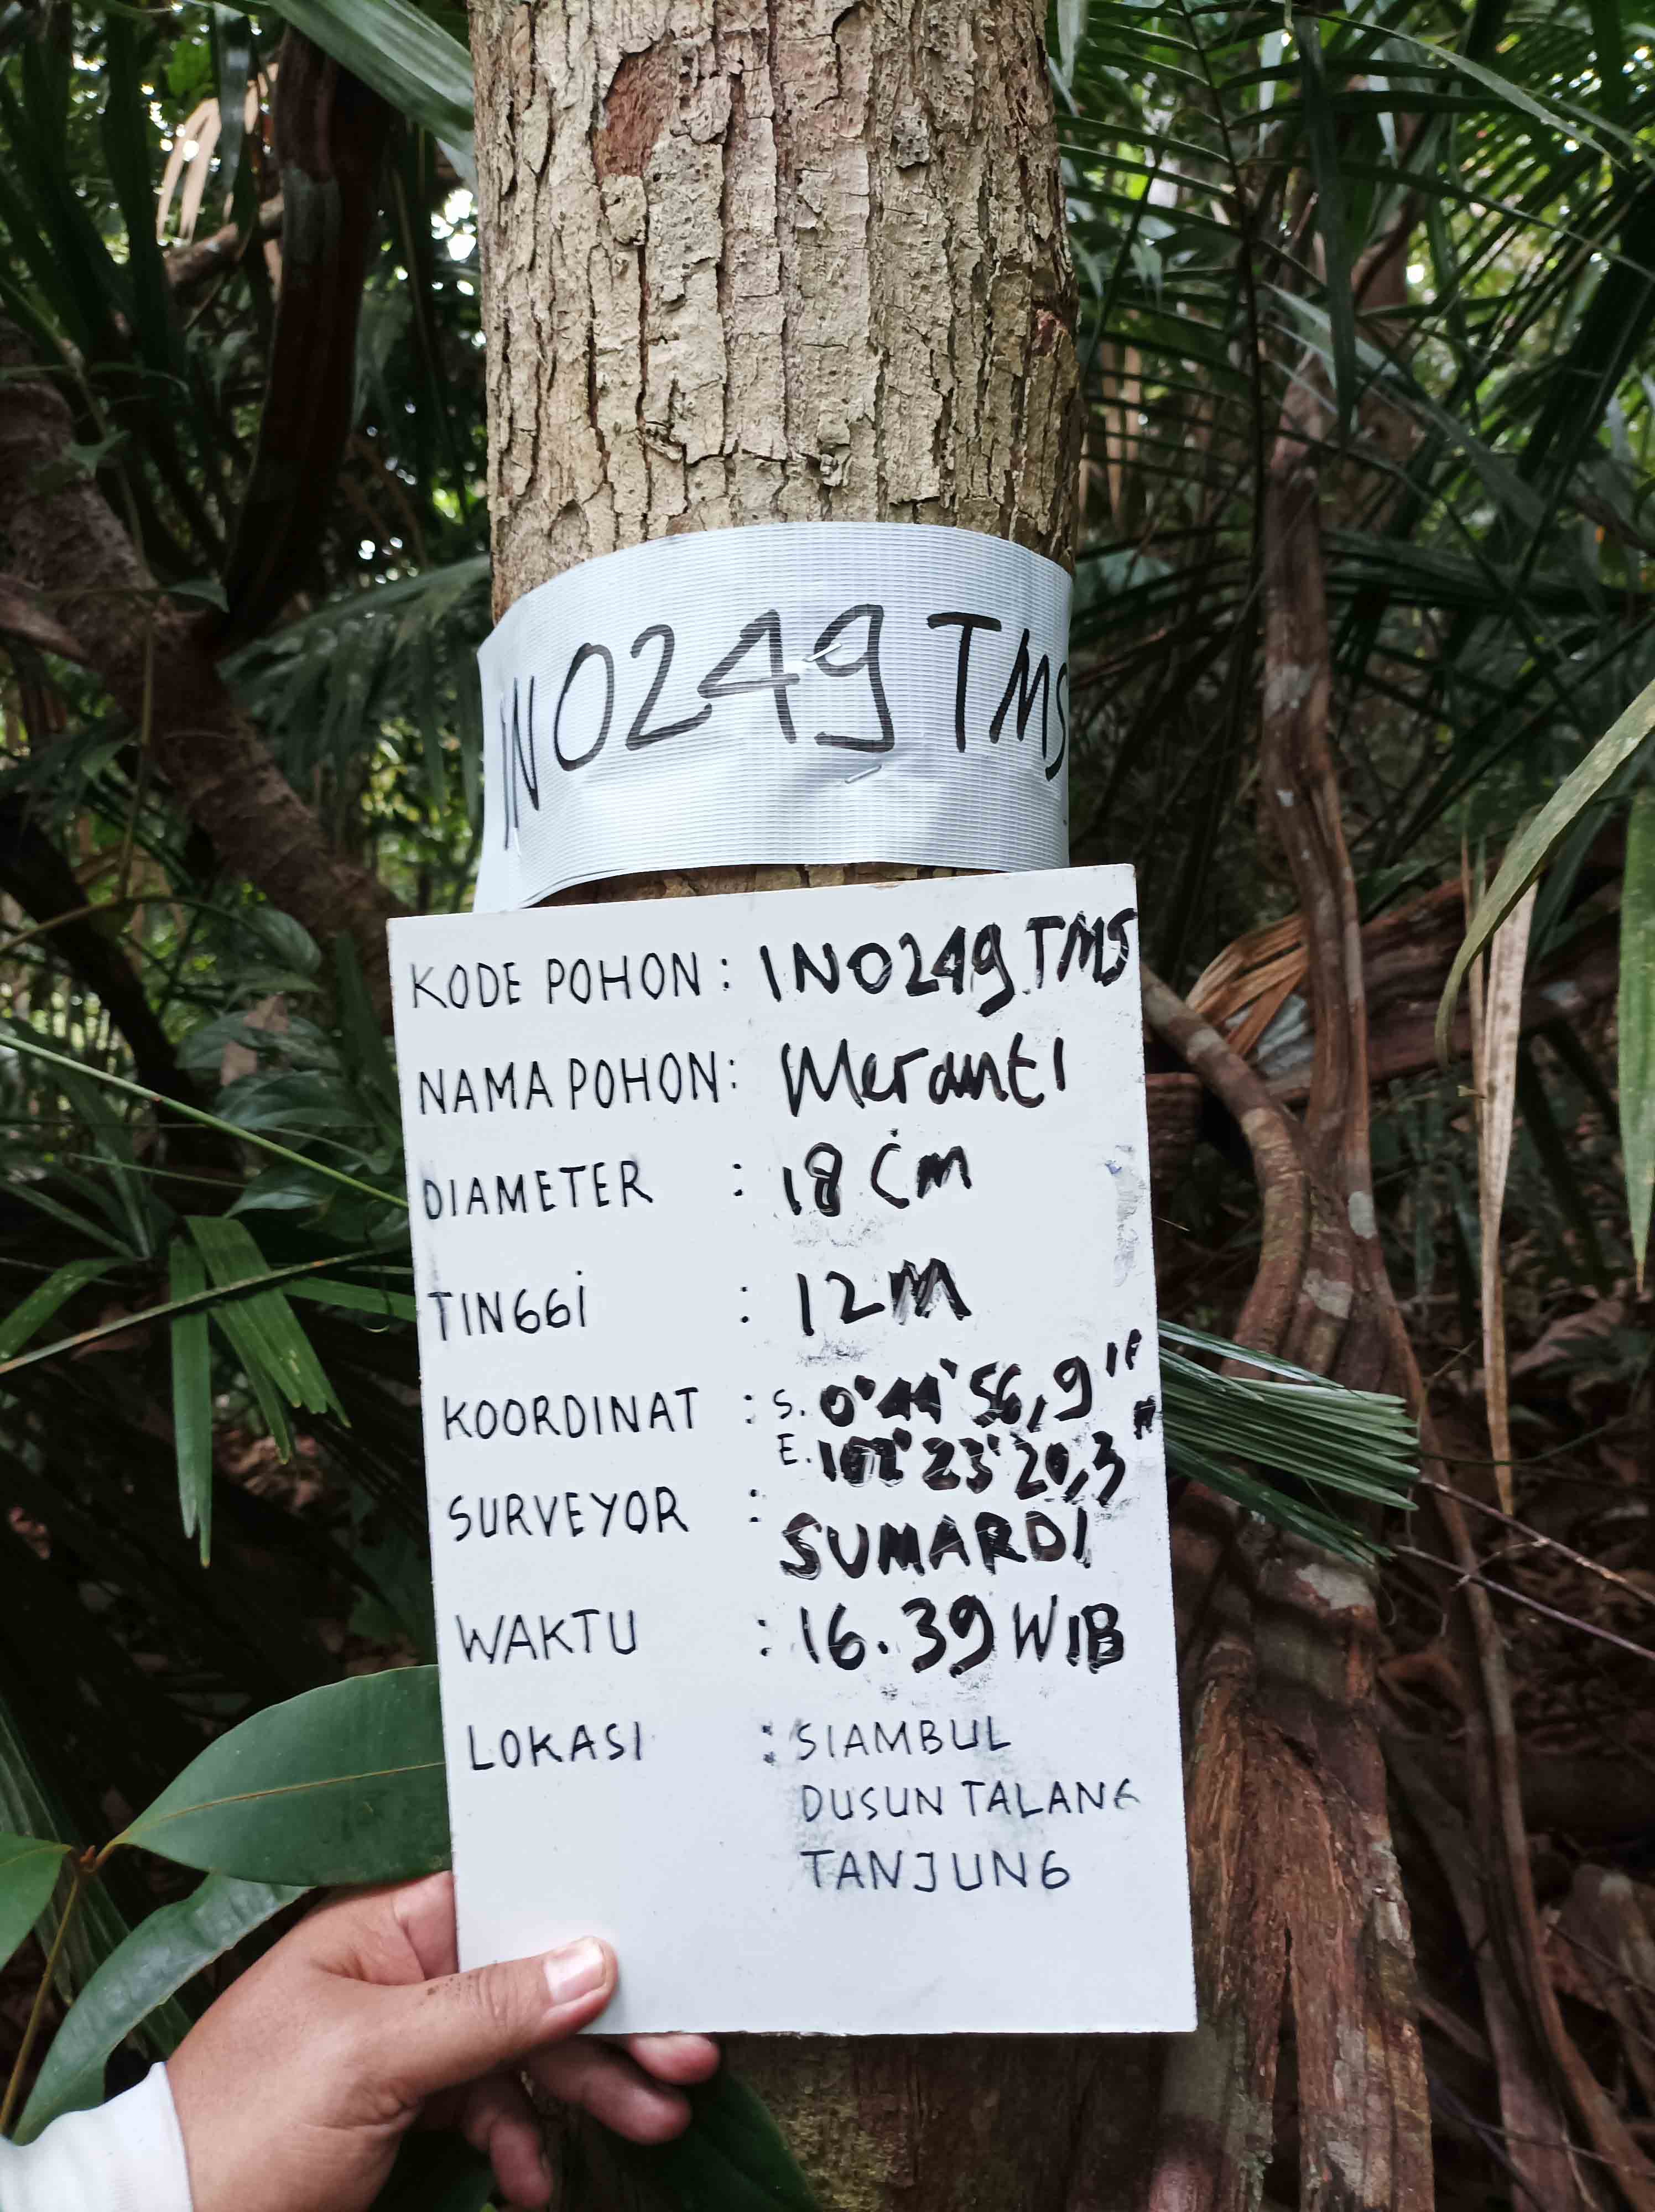 INO249 TMS
KODE POHON : INO249 TMS
NAMA POHON : Meranti
DIAMETER : 18 Cm
TINGGi : 12 M
KOORDINAT : S. 0°44'56,9"
E. 102°23'20,3"
SURVEYOR : SUMARDI
WAKTU : 16.39 WIB
LOKASI : SIAMBUL
DUSUN TALANG
TANJUNG